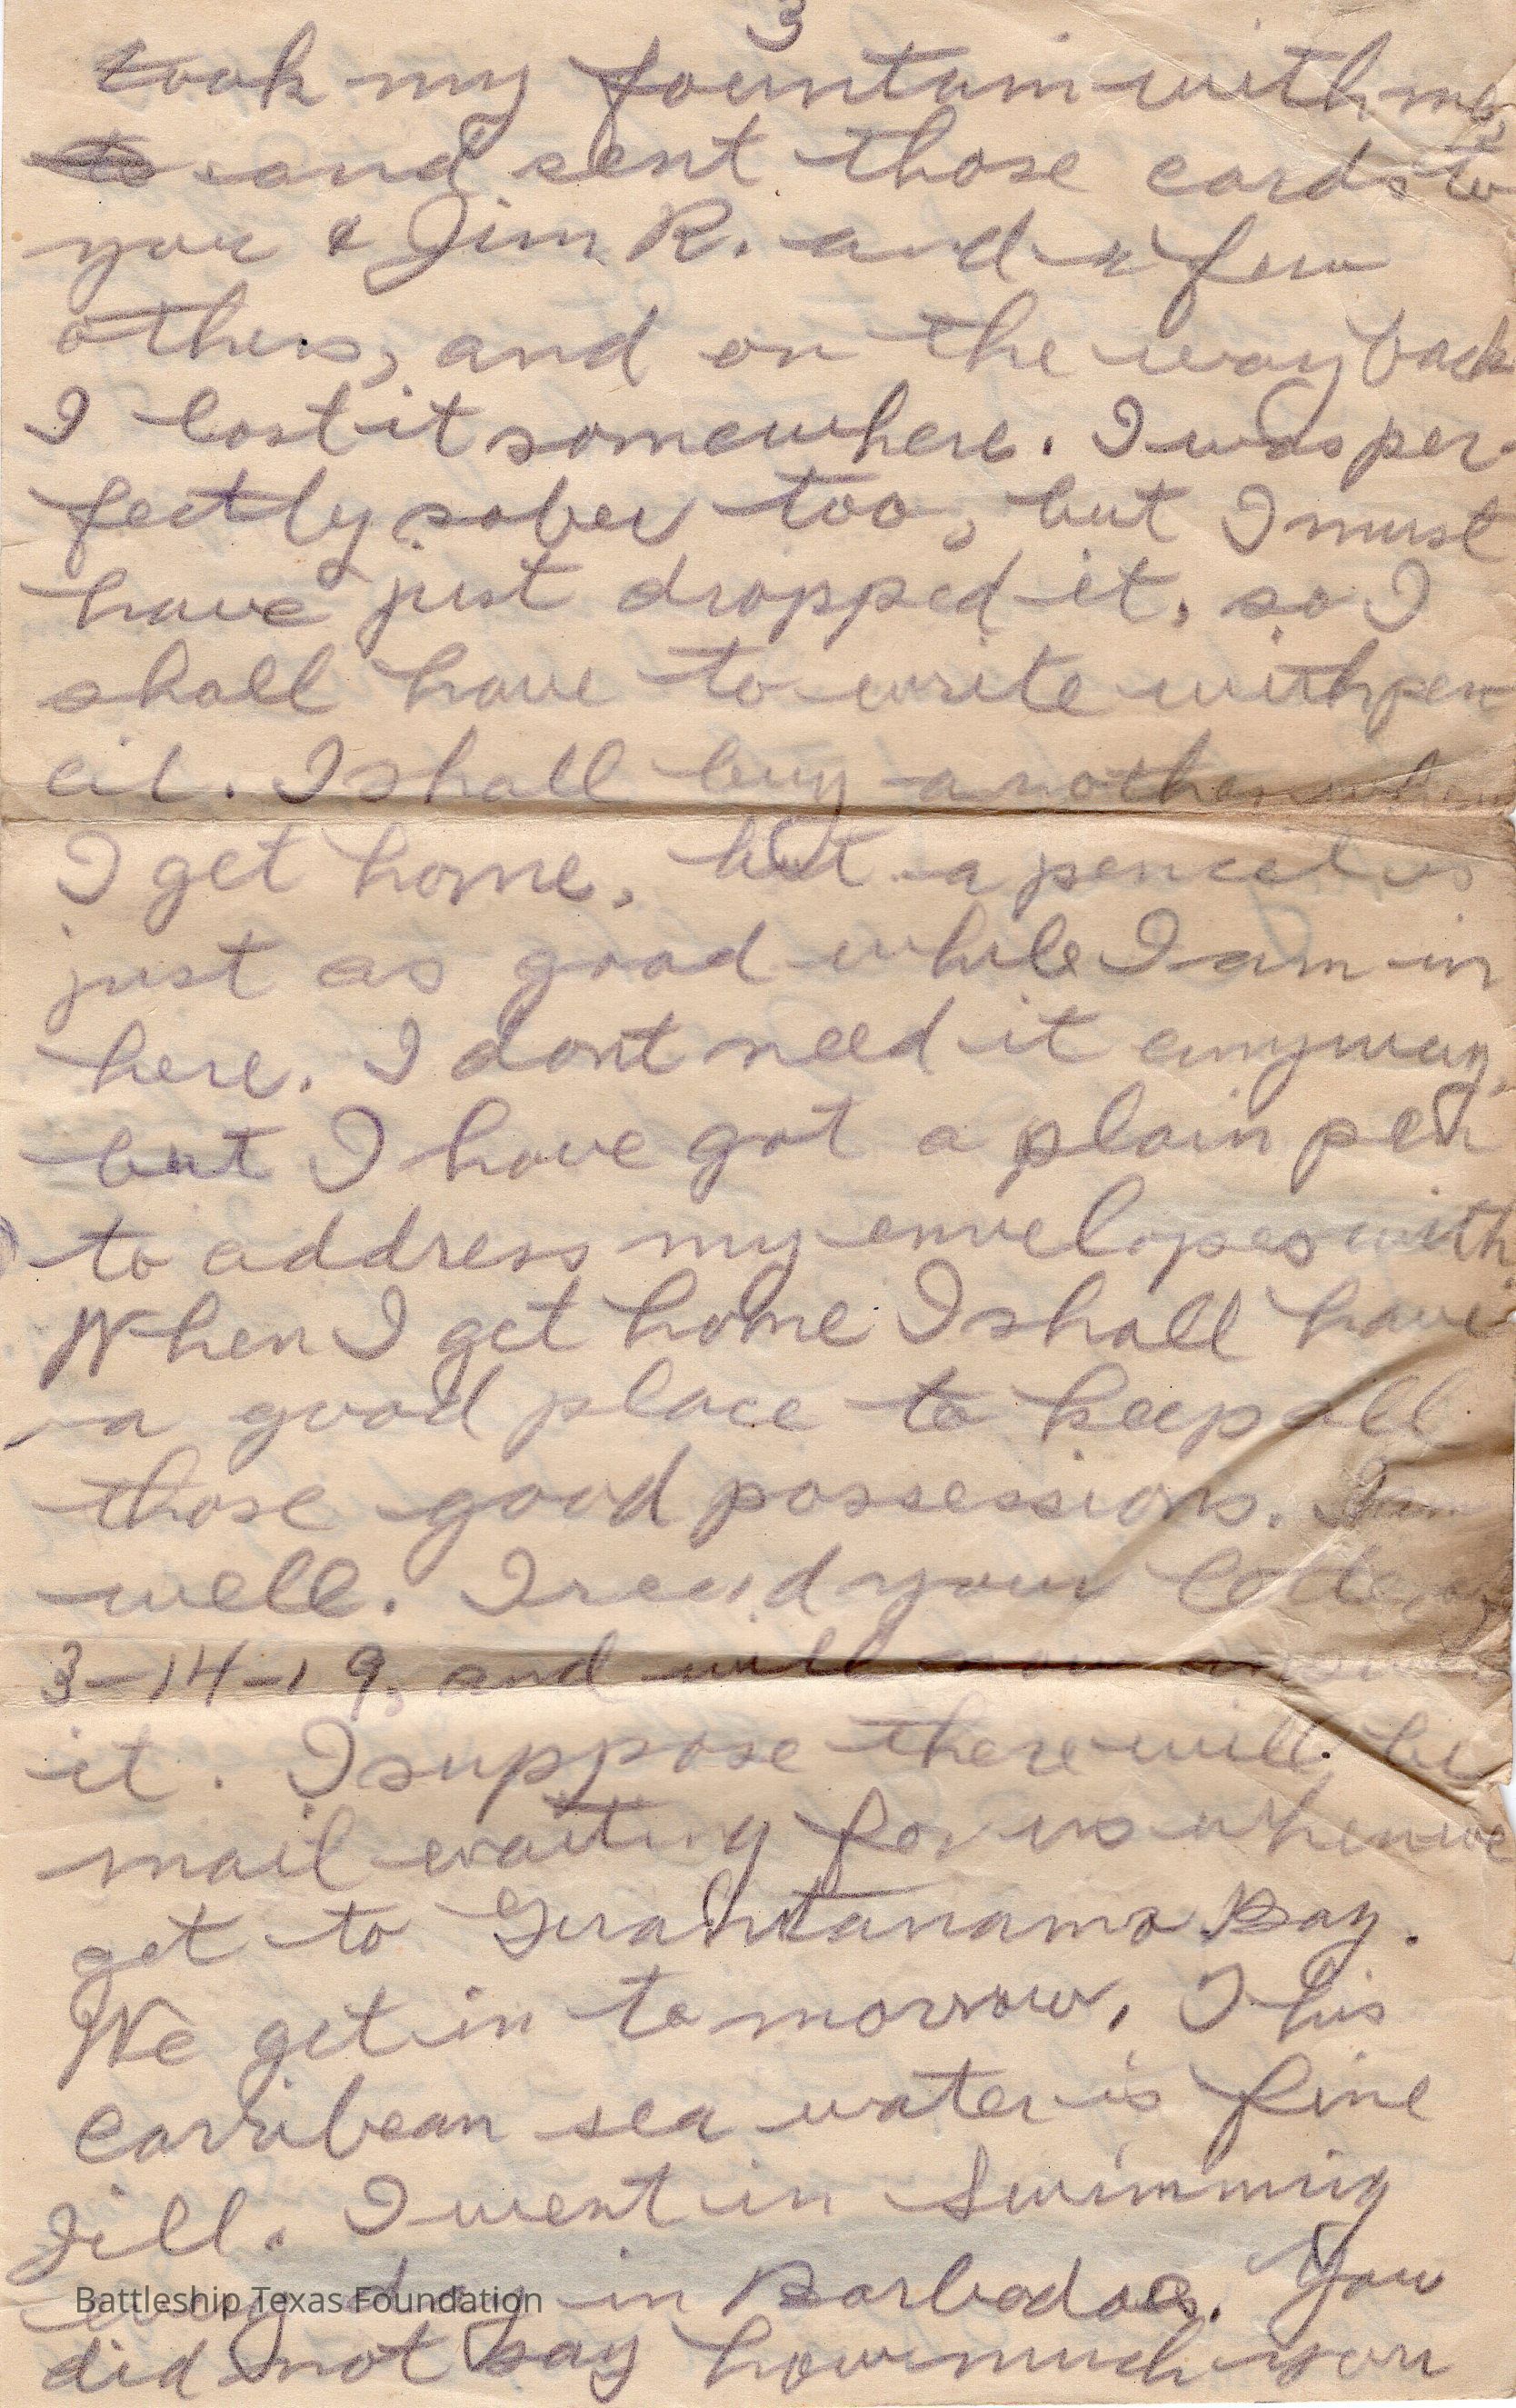 3
took my fountain with me,
and sent those cards to
you & Jim R. and a few
others, and on the way back
I lost it somewhere. I was per-
fectly sober too, but I must
have just dropped it, so I
shall have to write with pen
cil. I shall buy another when
I get home, but a pencil is
just as good while I am in
here. I dont need it anyway,
but I have got a plain pen
to address my envelopes with.
When I get home I shall have
a good place to keep all
those good possessions. I am
well. I rec'd your letter of
3-14-19, and will now answer
it. I suppose there will be
mail waiting for us when we
get to Guantanamo Bay.
We get in tomorrow, This
Carribean sea water is fine
Jill. I went in swimming
day in Barbados. You
Battleship Texas Foundation
did not say how much you